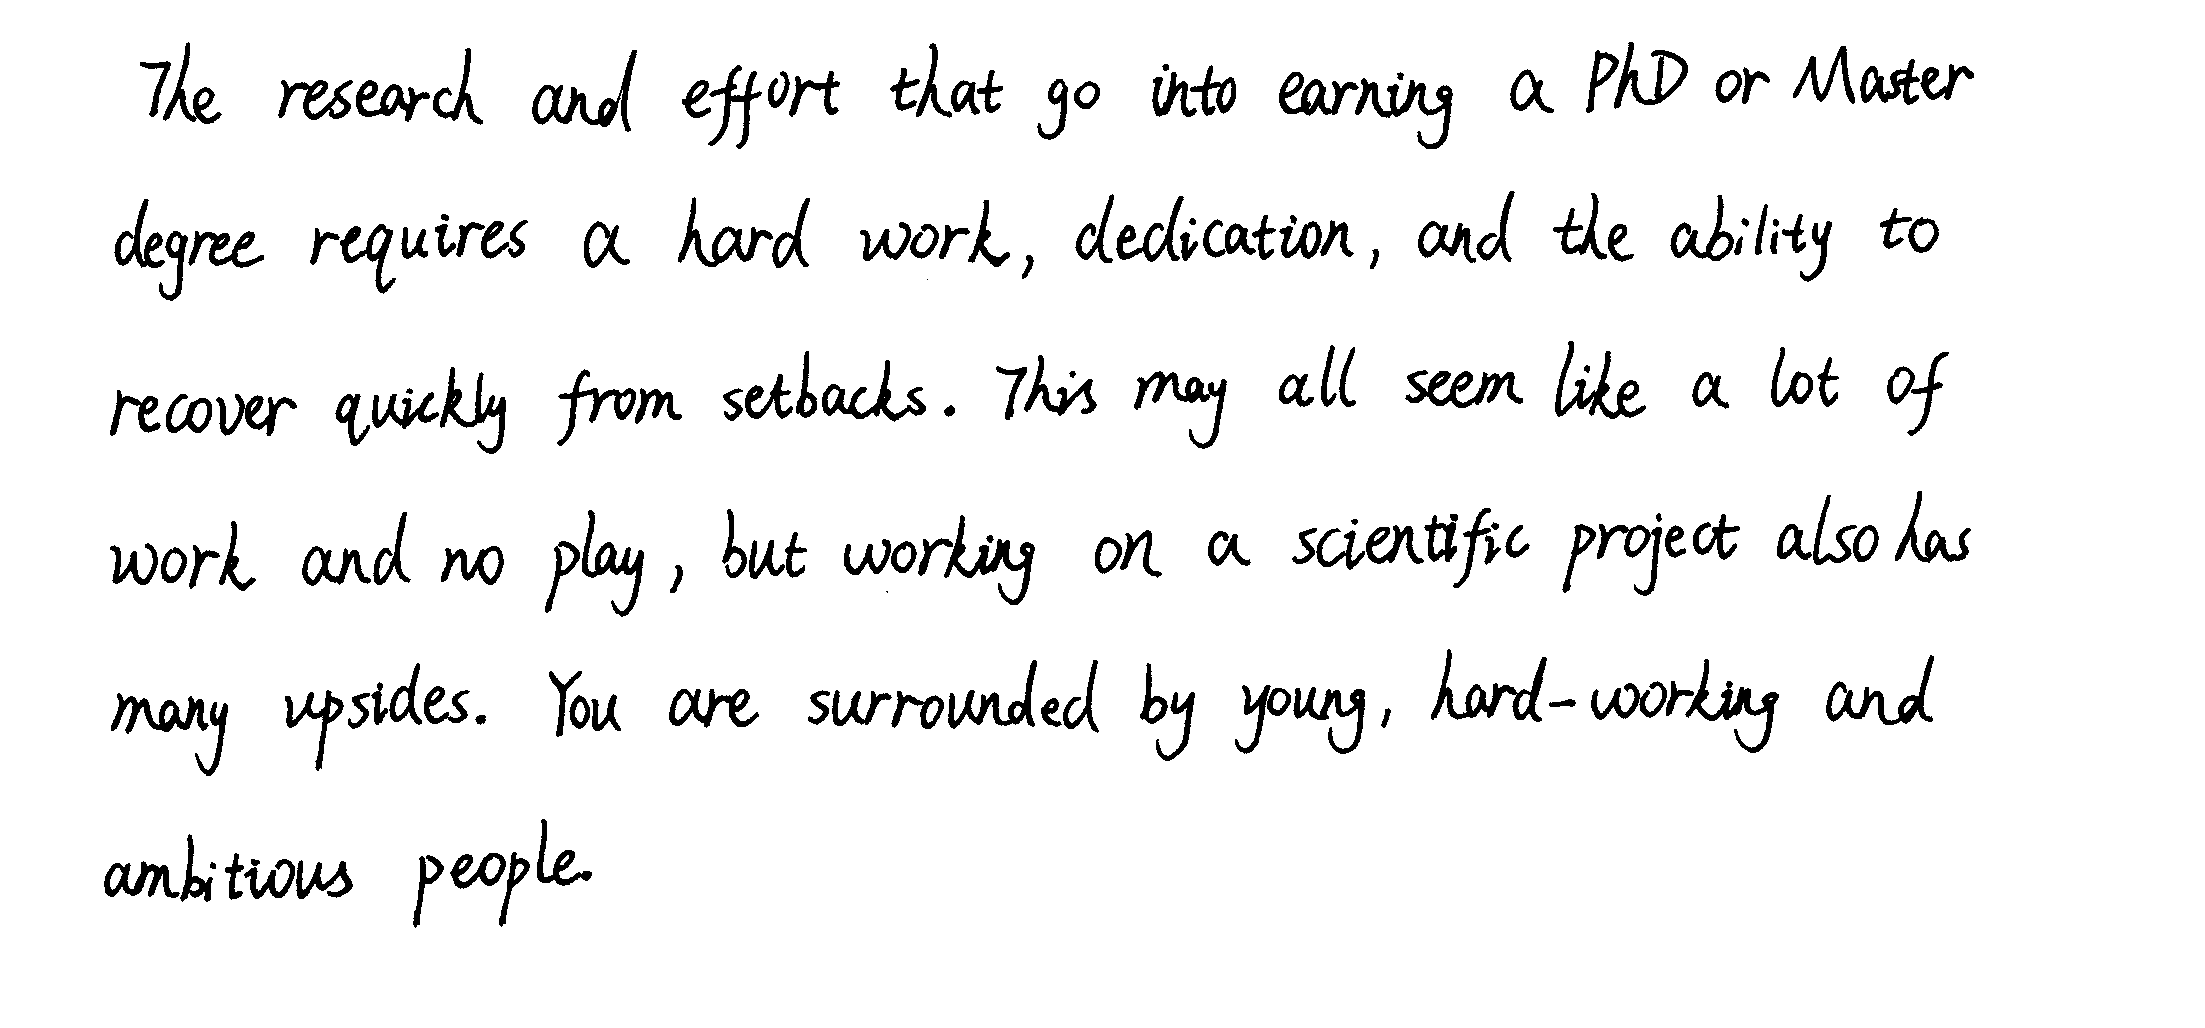 The research and effort that go into earning a PhD or Master
degree requires a hard work, dedication, and the ability to
recover quickly from setbacks. This may all seem like a lot of
work and no play, but working on a scientific project also has
many upsides. You are surrounded by young, hard-working and
ambitious people.